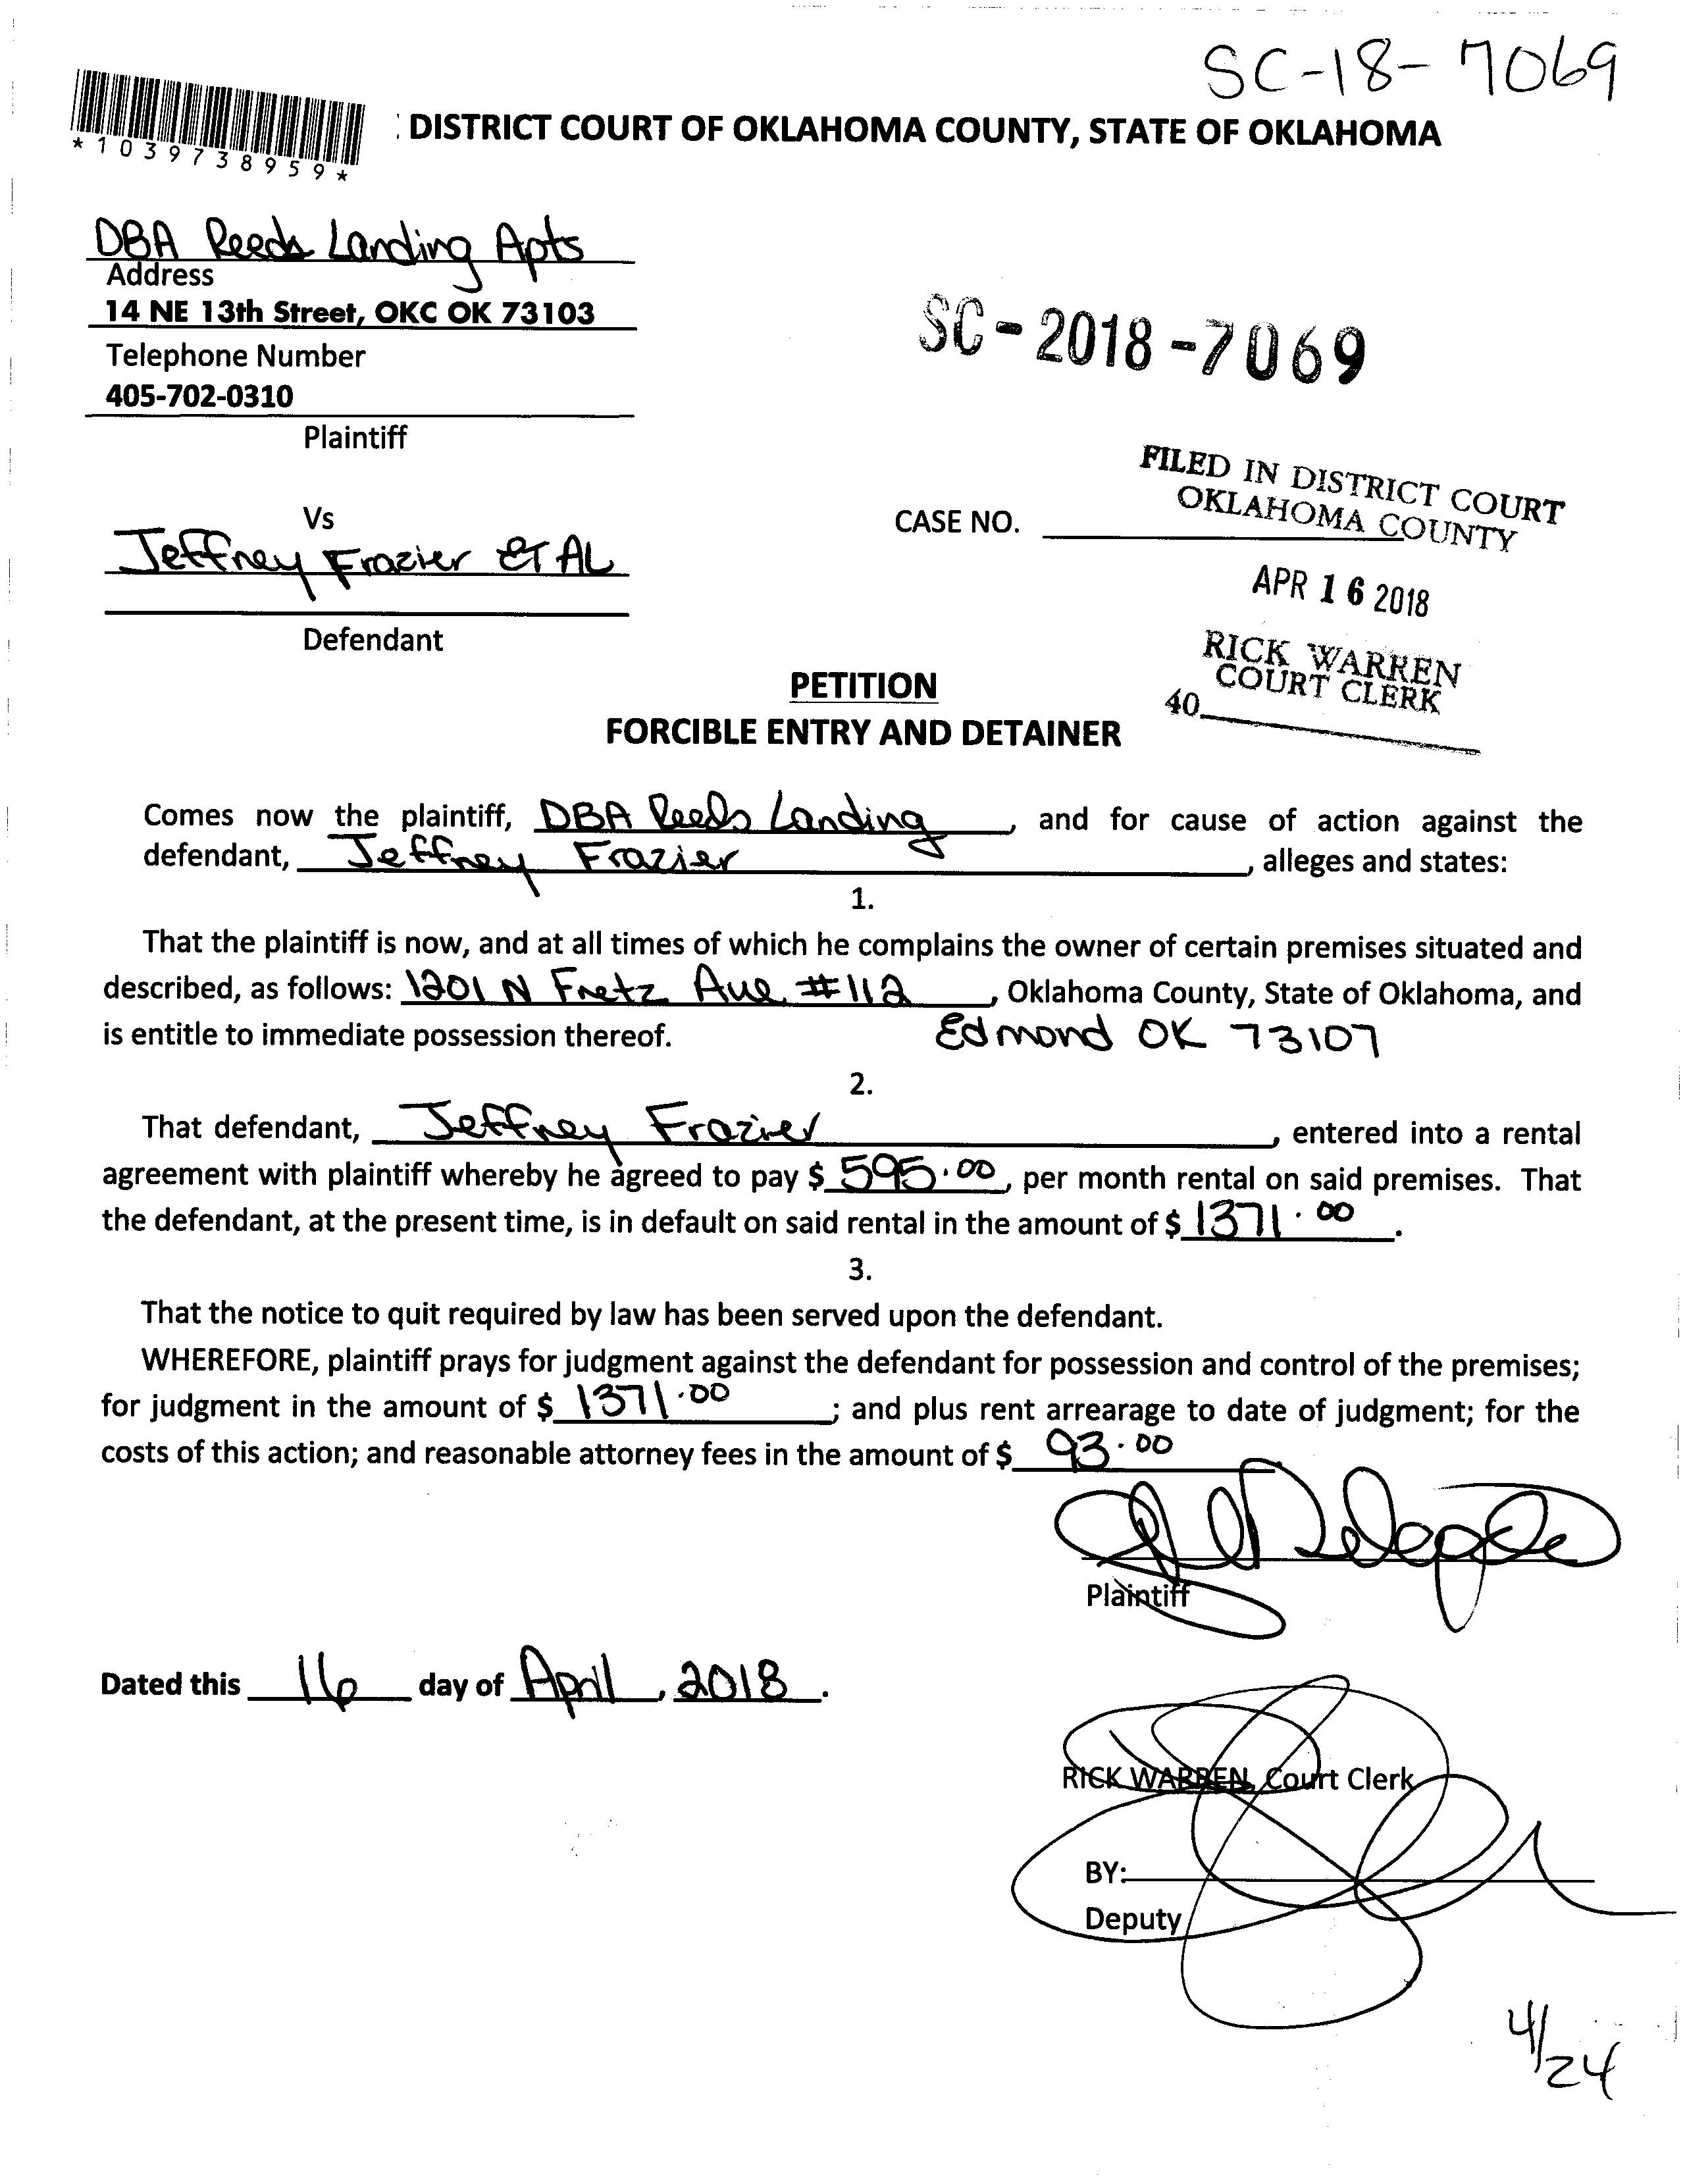 SC-18-7069
*1039738959*
: DISTRICT COURT OF OKLAHOMA COUNTY, STATE OF OKLAHOMA
DBA Reeds Landing Apts
Address
14 NE 13th Street, OKC OK 73103
Telephone Number
405-702-0310
Plaintiff
SC-2018-7069
Vs
Jeffrey Frazier ET AL
Defendant
CASE NO.
FILED IN DISTRICT COURT
OKLAHOMA COUNTY
APR 16 2018
RICK WARREN
COURT CLERK
40
PETITION
FORCIBLE ENTRY AND DETAINER
Comes now the plaintiff, DBA Reeds Landing, and for cause of action against the
defendant, Jeffrey Frazier, alleges and states:
1.
That the plaintiff is now, and at all times of which he complains the owner of certain premises situated and
described, as follows: 1201 N Fretz Ave #112, Oklahoma County, State of Oklahoma, and
is entitle to immediate possession thereof. Edmond OK 73107
2.
That defendant, Jeffrey Frazier, entered into a rental
agreement with plaintiff whereby he agreed to pay $ 595.00, per month rental on said premises. That
the defendant, at the present time, is in default on said rental in the amount of $ 1371.00.
3.
That the notice to quit required by law has been served upon the defendant.
WHEREFORE, plaintiff prays for judgment against the defendant for possession and control of the premises;
for judgment in the amount of $ 1371.00; and plus rent arrearage to date of judgment; for the
costs of this action; and reasonable attorney fees in the amount of $ 93.00
Plaintiff
Dated this 16 day of April, 2018.
RICK WARREN, Court Clerk
BY:
Deputy
4/24